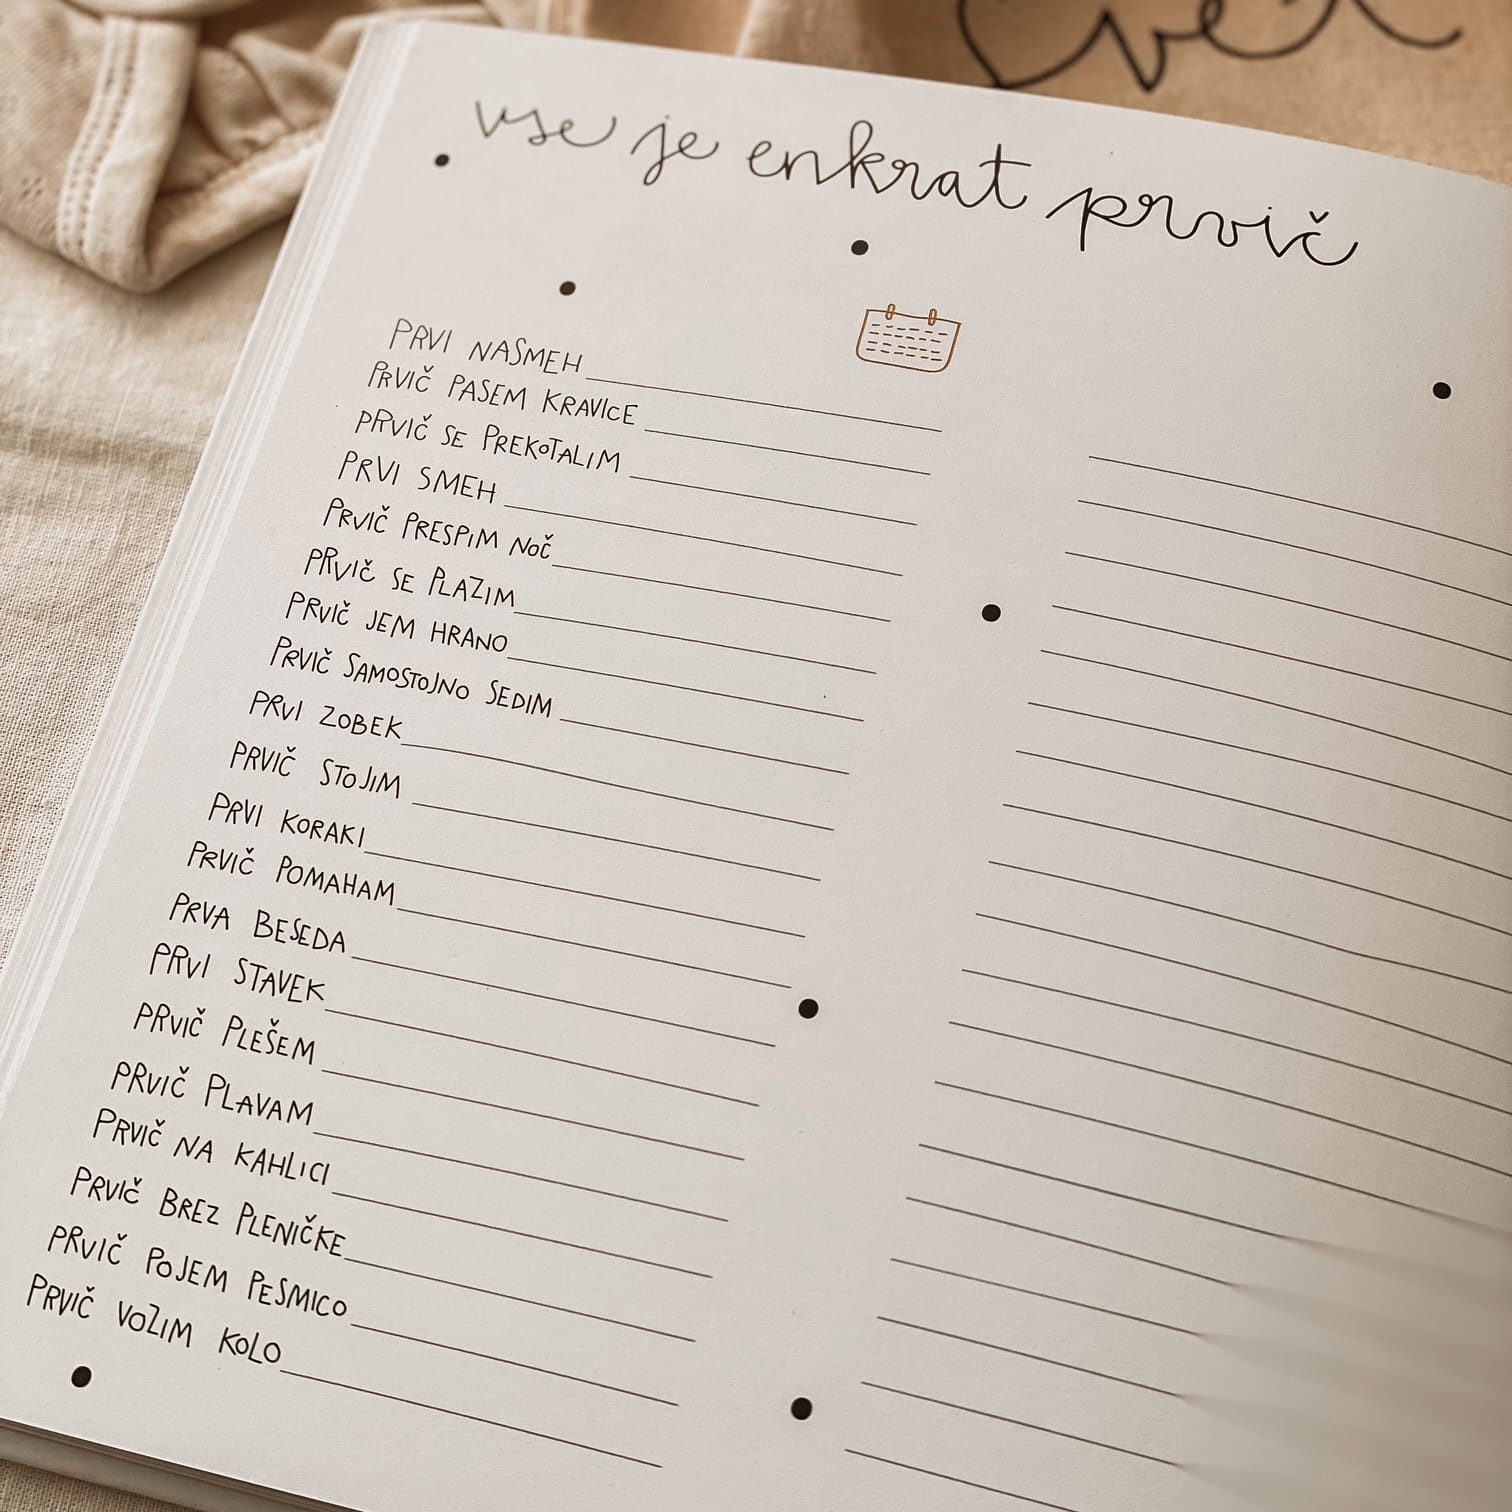 vse je enkrat prvič
PRVI NASMEH
PRVIČ PASEM KRAVICE
PRVIČ SE PREKOTALIM
PRVI SMEH
PRVIČ PRESPIM NOČ
PRVIČ SE PLAZIM
PRVIČ JEM HRANO
PRVIČ SAMOSTOJNO SEDIM
PRVI ZOBEK
PRVIČ STOJIM
PRVI KORAKI
PRVIČ POMAHAM
PRVA BESEDA
PRVI STAVEK
PRVIČ PLEŠEM
PRVIČ PLAVAM
PRVIČ NA KAHLICI
PRVIČ BREZ PLENIČKE
PRVIČ POJEM PESMICO
PRVIČ VOZIM KOLO